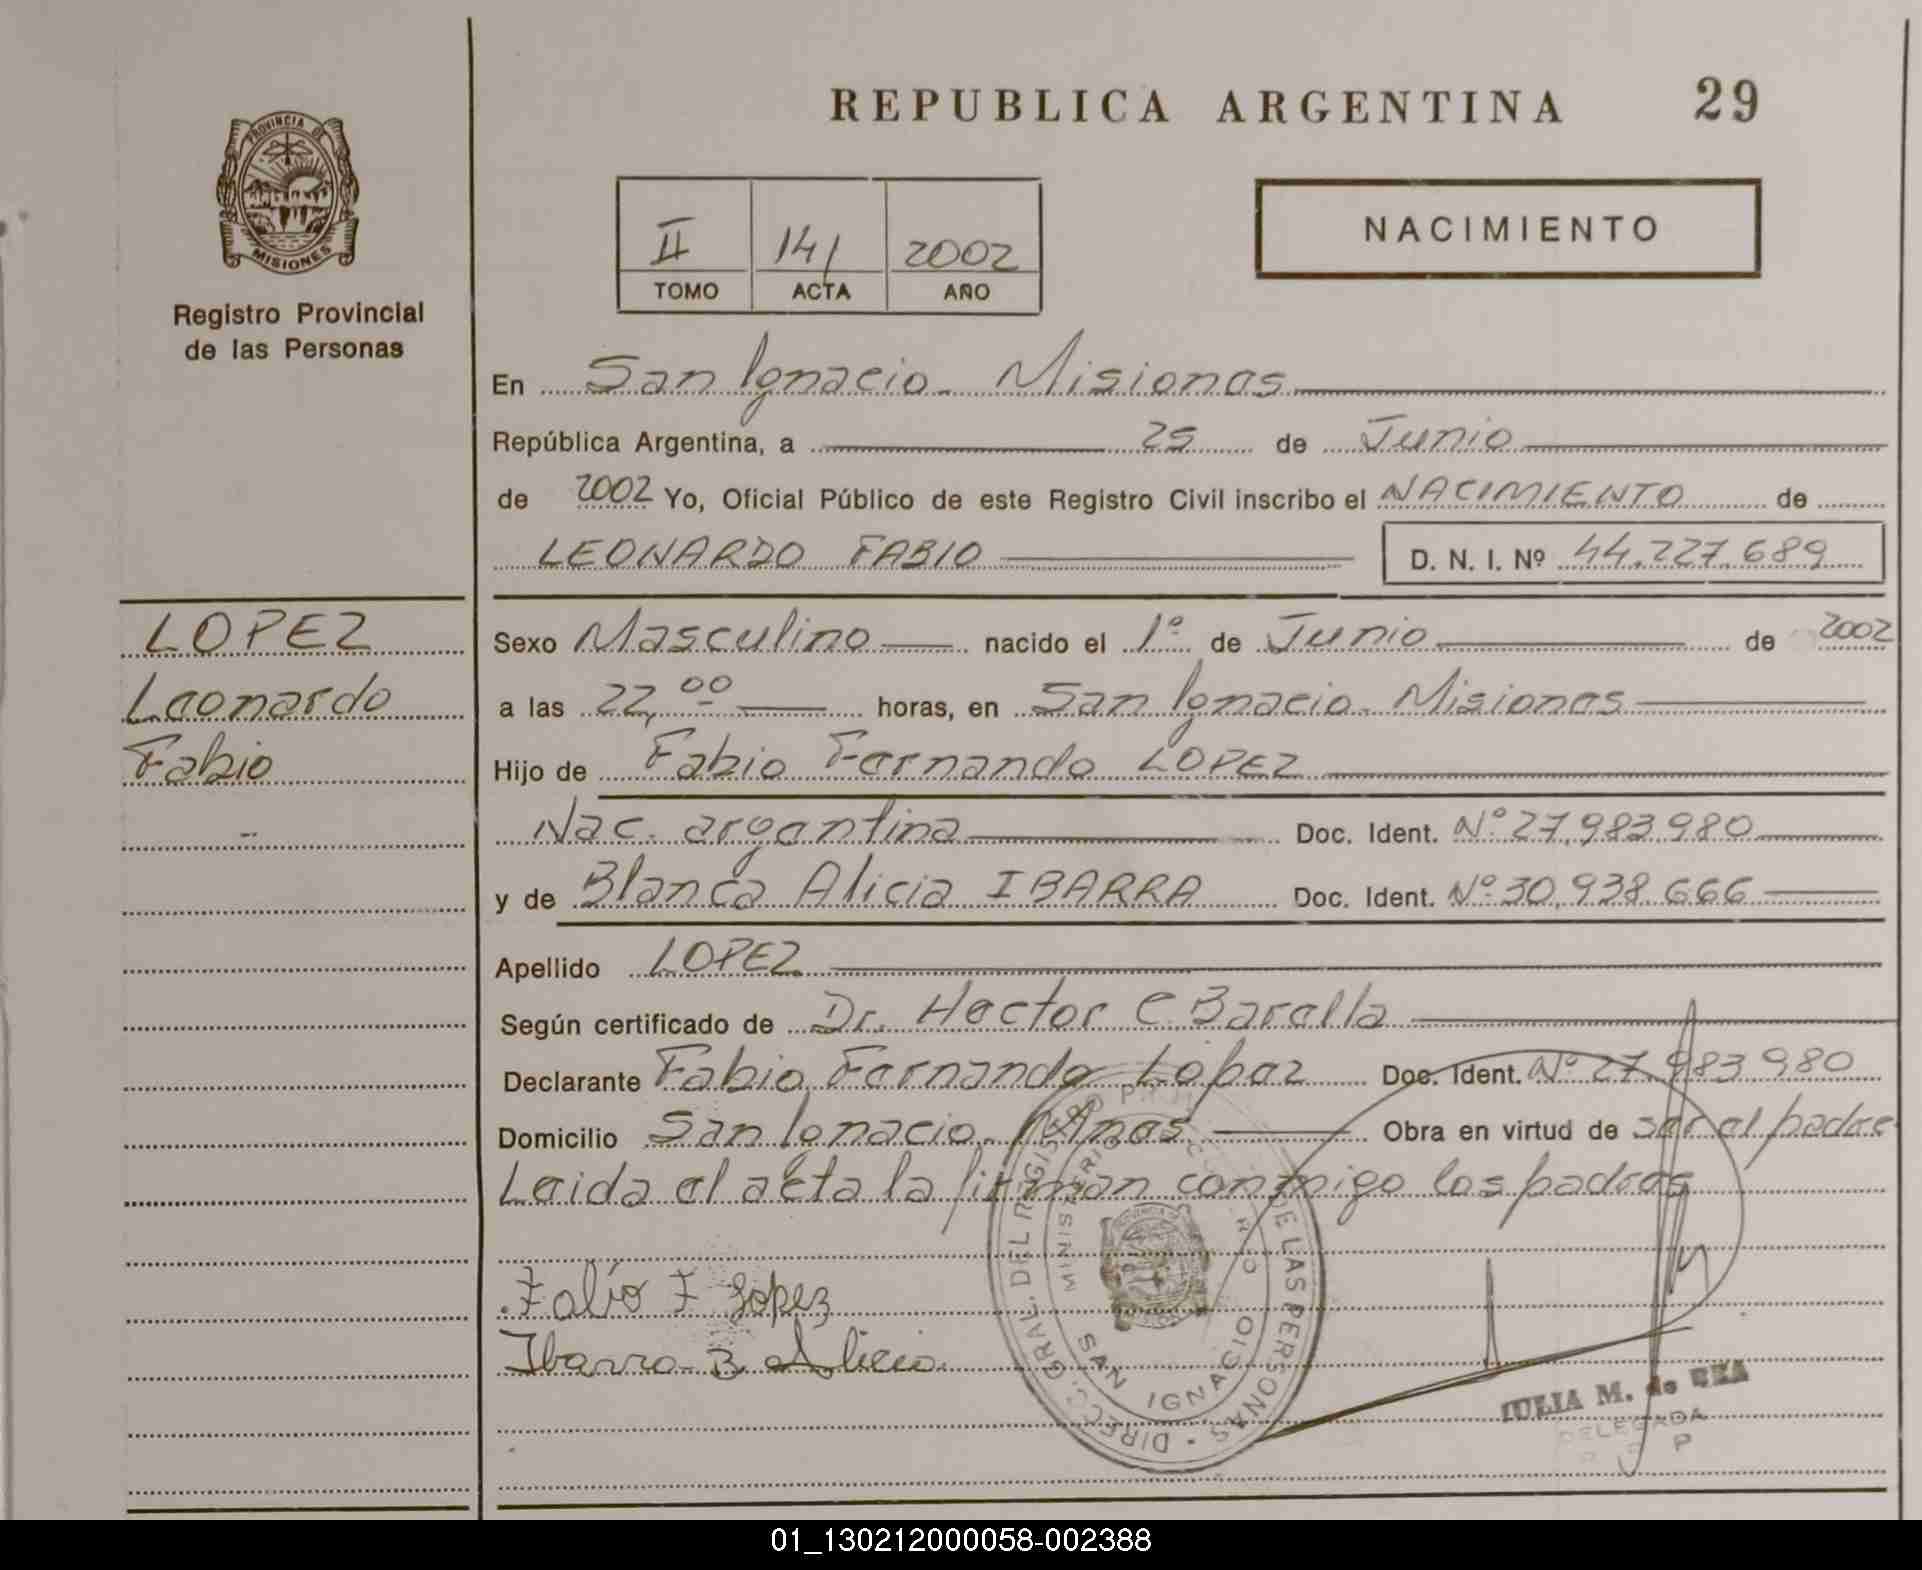 REPUBLICA ARGENTINA 29
PROVINCIA DE
MISIONES
Registro Provincial
de las Personas
II 141 2002
TOMO ACTA AÑO
NACIMIENTO
En San Ignacio - Misiones
República Argentina, a 25 de Junio
de 2002 Yo, Oficial Público de este Registro Civil inscribo el NACIMIENTO de
LEONARDO FABIO D. N. I. Nº 44.227.689
LOPEZ
Leonardo
Fabio
Sexo Masculino nacido el 1º de Junio de 2002
a las 22,00 horas, en San Ignacio - Misiones
Hijo de Fabio Fernando LOPEZ
Nac. argentina Doc. Ident. Nº 27.983.980
y de Blanca Alicia IBARRA Doc. Ident. Nº 30.938.666
Apellido LOPEZ
Según certificado de Dr. Hector C. Barella
Declarante Fabio Fernando Lopez Doc. Ident. Nº 27.983.980
Domicilio San Ignacio - Mnes Obra en virtud de ser el padre
Leida el acta la firman conmigo los padres
Fabio F Lopez
Ibarra B Alicia
DIREC. GRAL. DEL REGISTRO DE LAS PERSONAS
MINISTERIO
SAN IGNACIO
JULIA M. de
DELEGADA
01_130212000058-002388